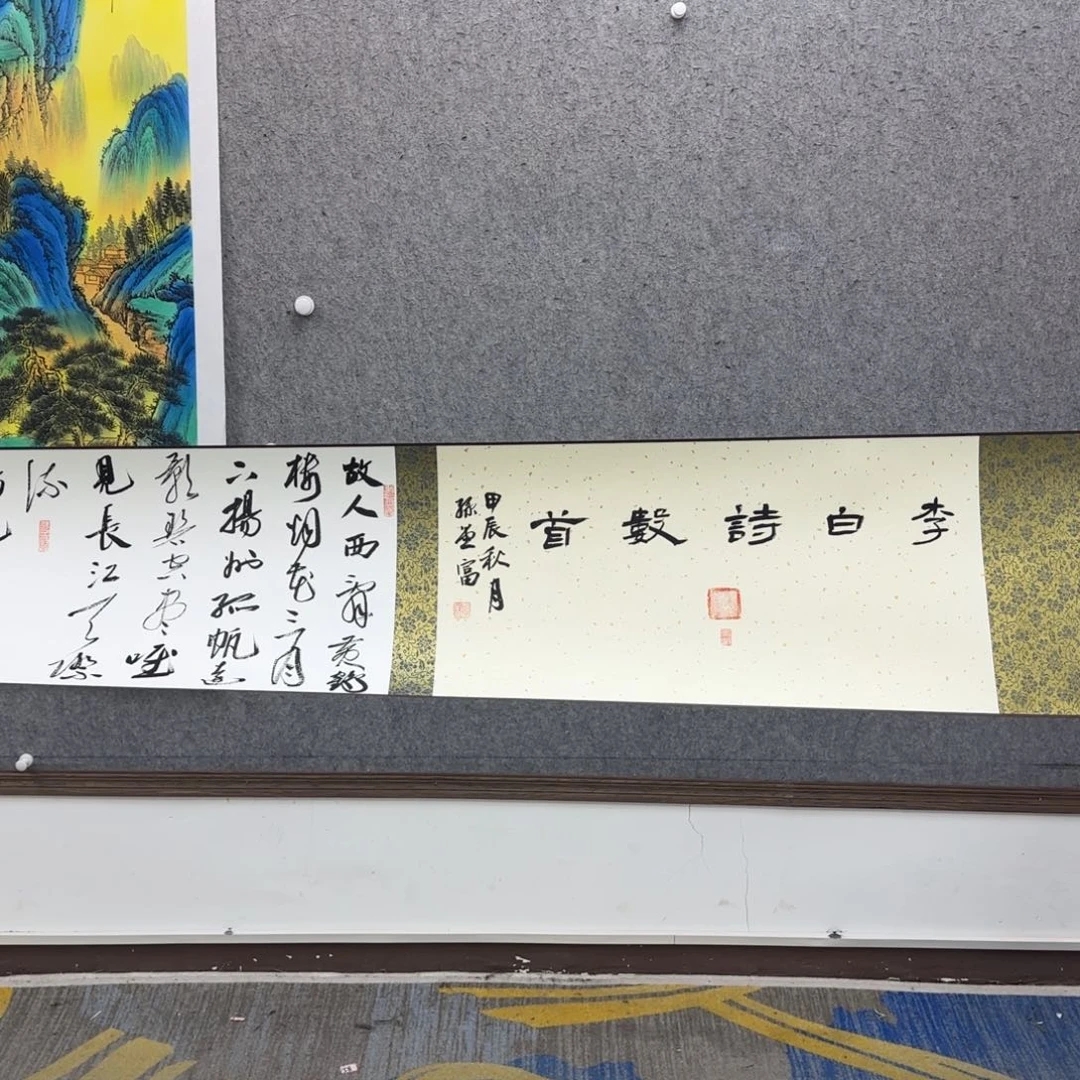 李白詩數首
甲辰秋月
故人西辭黃鶴
樓烟花三月
下揚州孤帆遠
影碧空盡唯
見長江天際
流